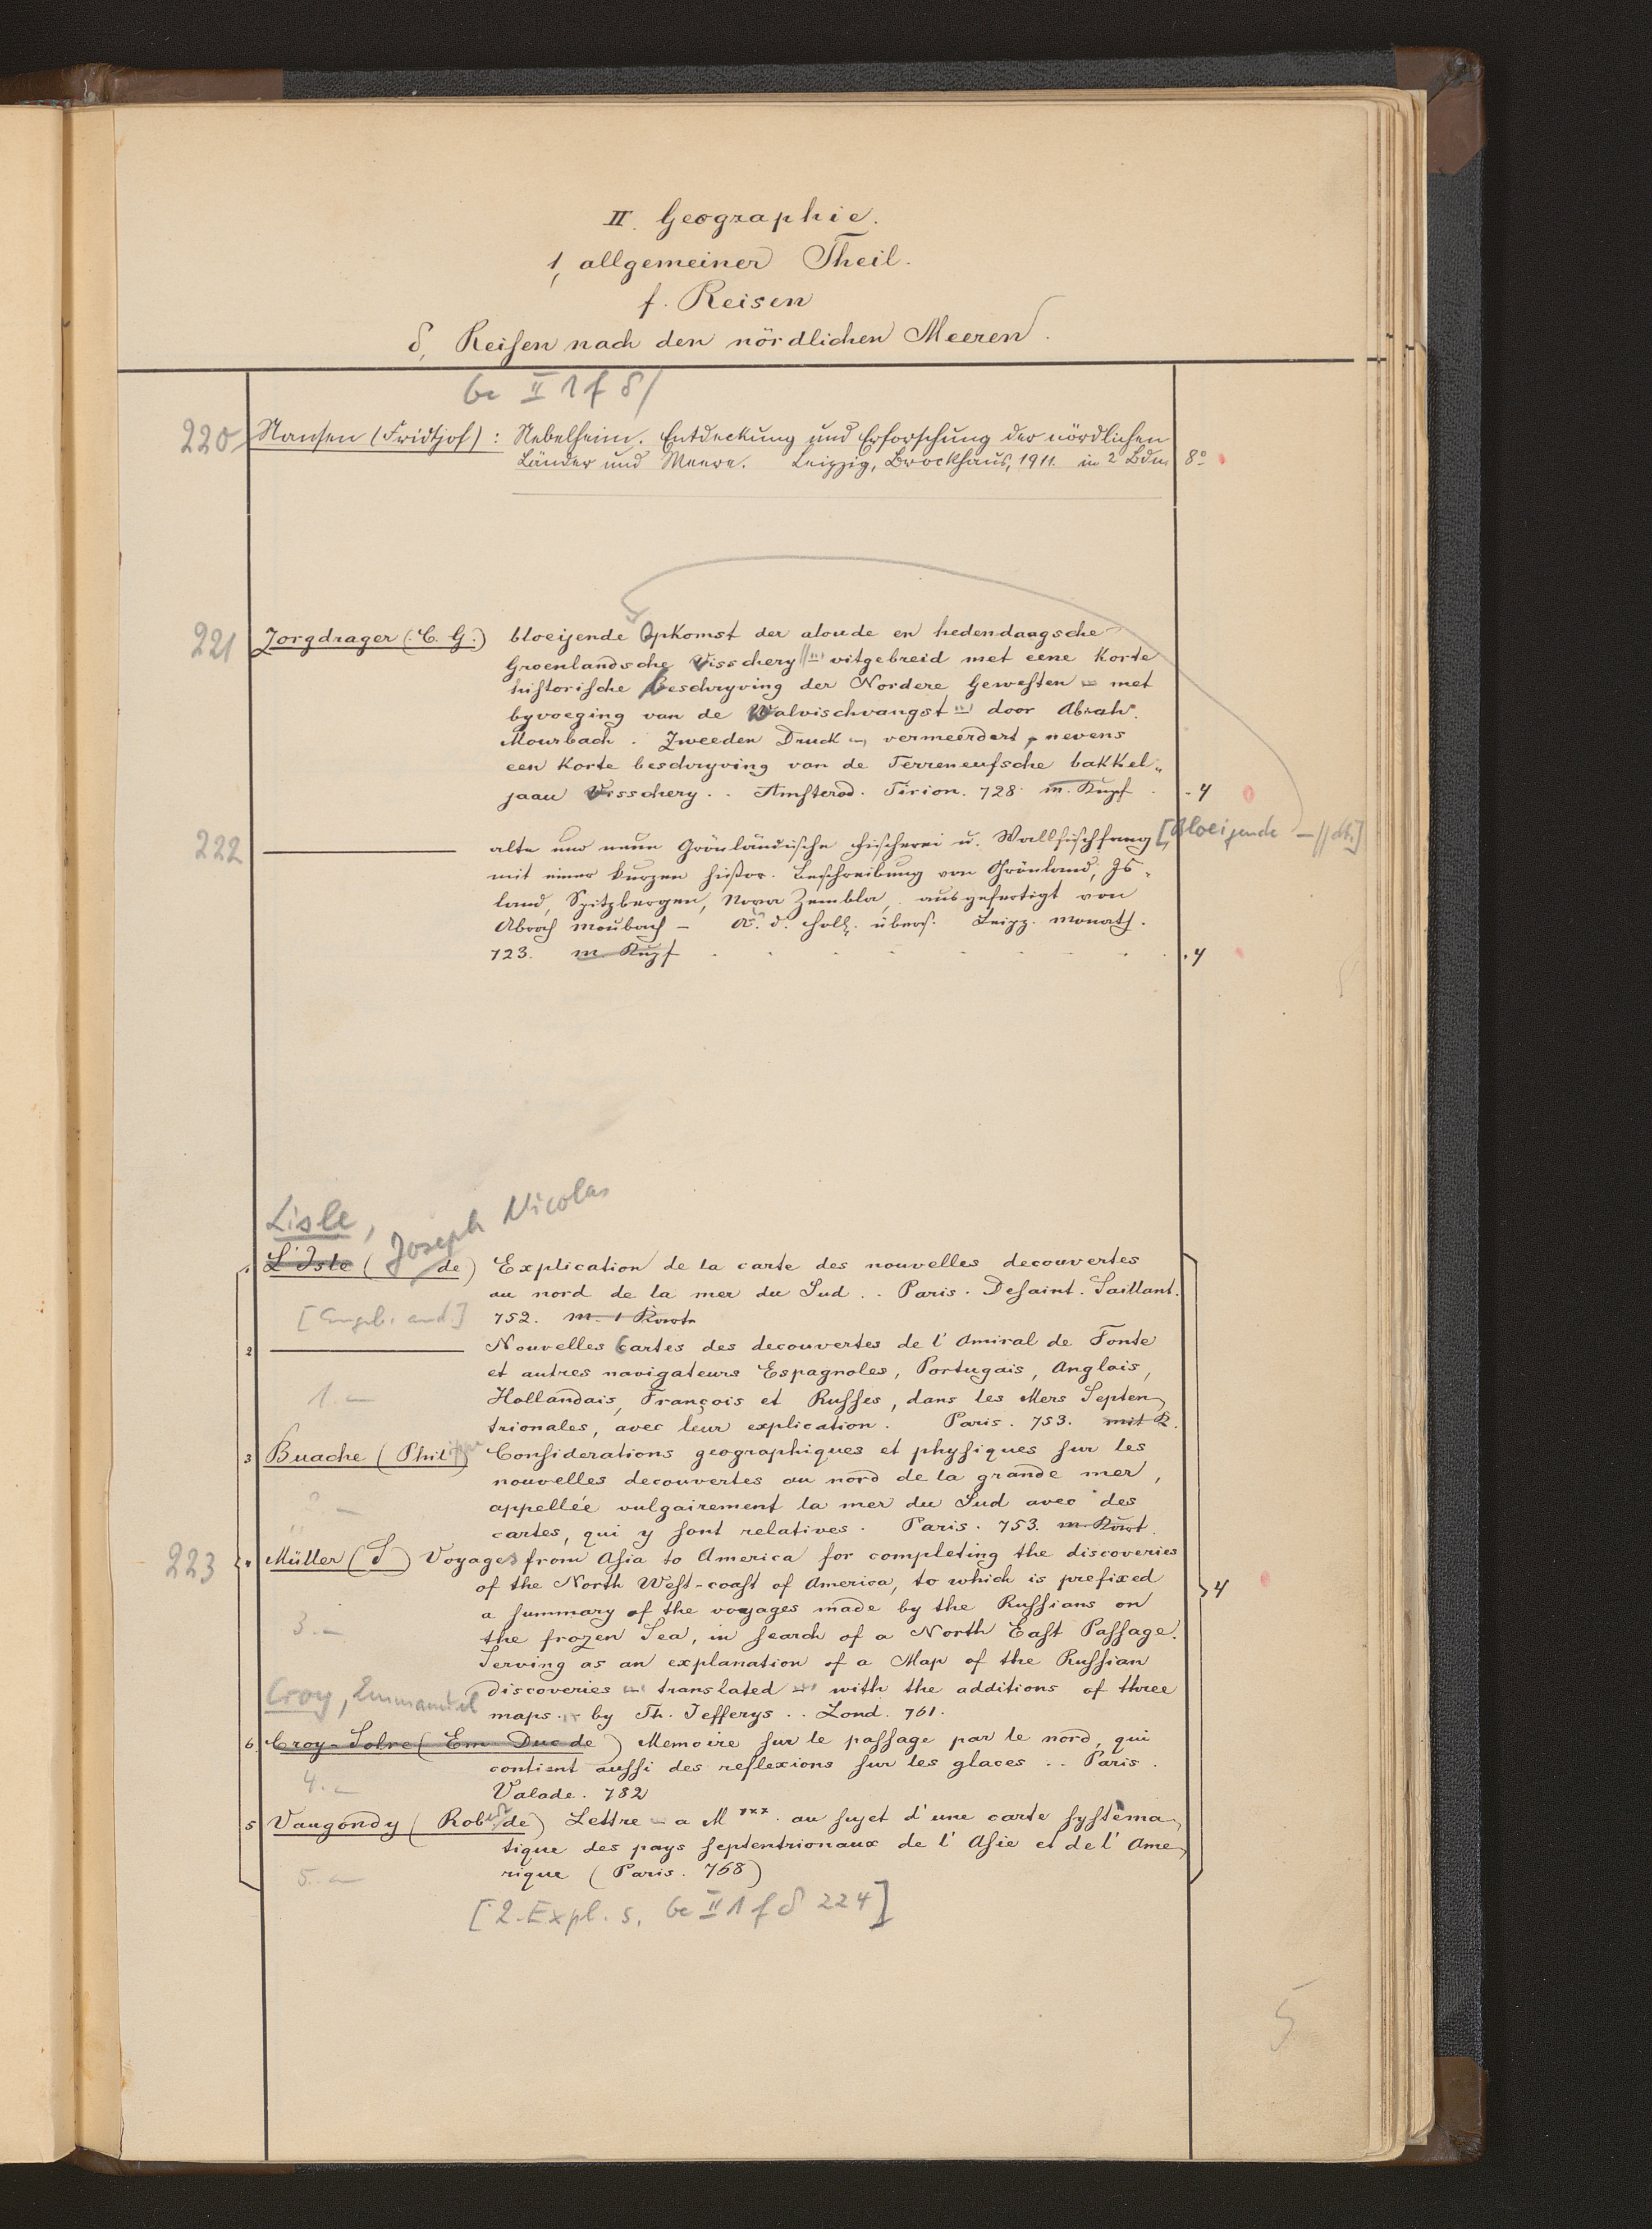 II. Geographie.
1, allgemeiner Theil.
f. Reisen
δ, Reisen nach den nördlichen Meeren.
Ge II 1 f δ/
220 Nansen (Fridtjof): Nebelheim. Entdeckung und Erforschung der nördlichen
Länder und Meere. Leipzig, Brockhaus, 1911. in 2 Bdn 8°
221 Zorgdrager (C. G.) bloeijende Opkomst der aloude en hedendaagsche
Groenlandsche Visschery // uitgebreid met eene korte
historische Beschryving der Nordere Gewesten – met
byvoeging van de Walvischvangst – door Abrah.
Moubach. Zweeden Druck – vermeerdert, nevens
een korte beschryving van de Terreneufsche bakkel-
jaau Visschery . . Amsterod. Tirion. 728. m. Kupf . - 4
222 ——— alte und neue Grönländische Fischerei u. Wallfischfang [Bloeijende – // dt.]
mit einer kurzen histor. Beschreibung von Grönland, Is-
land, Spitzbergen, Nova Zembla, ausgefertigt von
Abrah Moubach – A. d. Holl. übers. Leipz. Monath.
723. m. Kupf . 4
Lisle, Joseph Nicolas
1 L'Isle ( de) Explication de la carte des nouvelles decouvertes
au nord de la mer du Sud . . Paris. Desaint. Saillant.
[Angeb. and.] 752. m. 1 Karte
2 ——— Nouvelles Cartes des decouvertes de l'Amiral de Fonte
et autres navigateurs Espagnoles, Portugais, Anglais,
1. – Hollandais, François et Russes, dans les Mers Septen-
trionales, avec leur explication. Paris. 753. mit K.
3 Buache (Philippe) Considerations geographiques et physiques sur les
nouvelles decouvertes au nord de la grande mer,
2. – appellée vulgairement la mer du Sud avec des
cartes, qui y sont relatives. Paris. 753. m. Kart.
223 4 Müller (S) Voyages from Asia to America for completing the discoveries
of the North West-coast of America, to which is prefixed
a summary of the voyages made by the Russians on 4
3. – the frozen Sea, in search of a North East Passage.
Serving as an explanation of a Map of the Russian
Croy, Emmanuel discoveries – translated – with the additions of three
maps – by Th. Jefferys . . Lond. 761.
6. Croy-Solre (Em Duc de) Memoire sur le passage par le nord, qui
contient aussi des reflexions sur les glaces . . Paris.
4. – Valade. 782
5 Vaugondy (Robert de) Lettre – a M *** au sujet d'une carte systèma-
tique des pays septentrionaux de l'Asie et de l'Ame-
5. – rique (Paris. 768)
[2. Expl. s. Ge II 1 f δ 224]
5